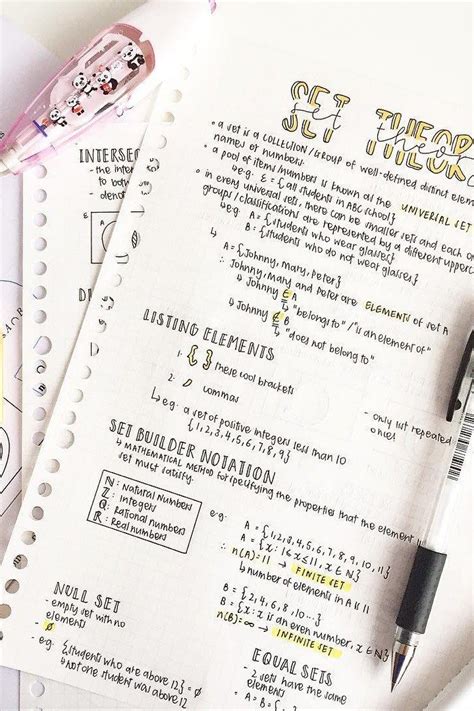 SET THEOR
set theor
• a set is a COLLECTION/GROUP of well-defined distinct elem
names or numbers.
• a pool of items/numbers is known as the UNIVERSAL SET
↳ e.g. Ɛ = {all students in ABC school}
• in every universal sets, there can be smaller sets and each o
groups/classifications are represented by a different upperc
↳ e.g. A = {students who wear glasses}
B = {students who do not wear glasses}
↳
A = {Johnny, Mary, Peter}
∴ Johnny, Mary and Peter are ELEMENTS of set A
↳ Johnny ∈ A
↳ "belong to" / "is an element of"
↳ Johnny ∉ B
↳ "does not belong to"
LISTING ELEMENTS
1. { } these cool brackets
2. , commas
↳ e.g. a set of positive integers less than 10
{1, 2, 3, 4, 5, 6, 7, 8, 9}
- only list repeated
once!
SET BUILDER NOTATION
↳ MATHEMATICAL METHOD for specifying the properties that the element
set must satisfy.
N : Natural Numbers
Z : Integers
Q : Rational numbers
R : Real numbers
e.g. A = {1, 2, 3, 4, 5, 6, 7, 8, 9, 10, 11}
A = {x: 1≤x≤11, x ∈ N}
∴ n(A) = 11 → FINITE SET
↳ number of elements in A is 11
B = {2, 4, 6, 8, 10...}
B = {x: x is an even number, x ∈ N}
n(B) = ∞ → INFINITE SET
NULL SET
- empty set with no
elements
- Ø
- e.g. {students who are above 12} = Ø
↳ not one student was above 12
EQUAL SETS
- 2 sets have the same
elements
INTERSEC
- the inter
to both
- denot
A
DI